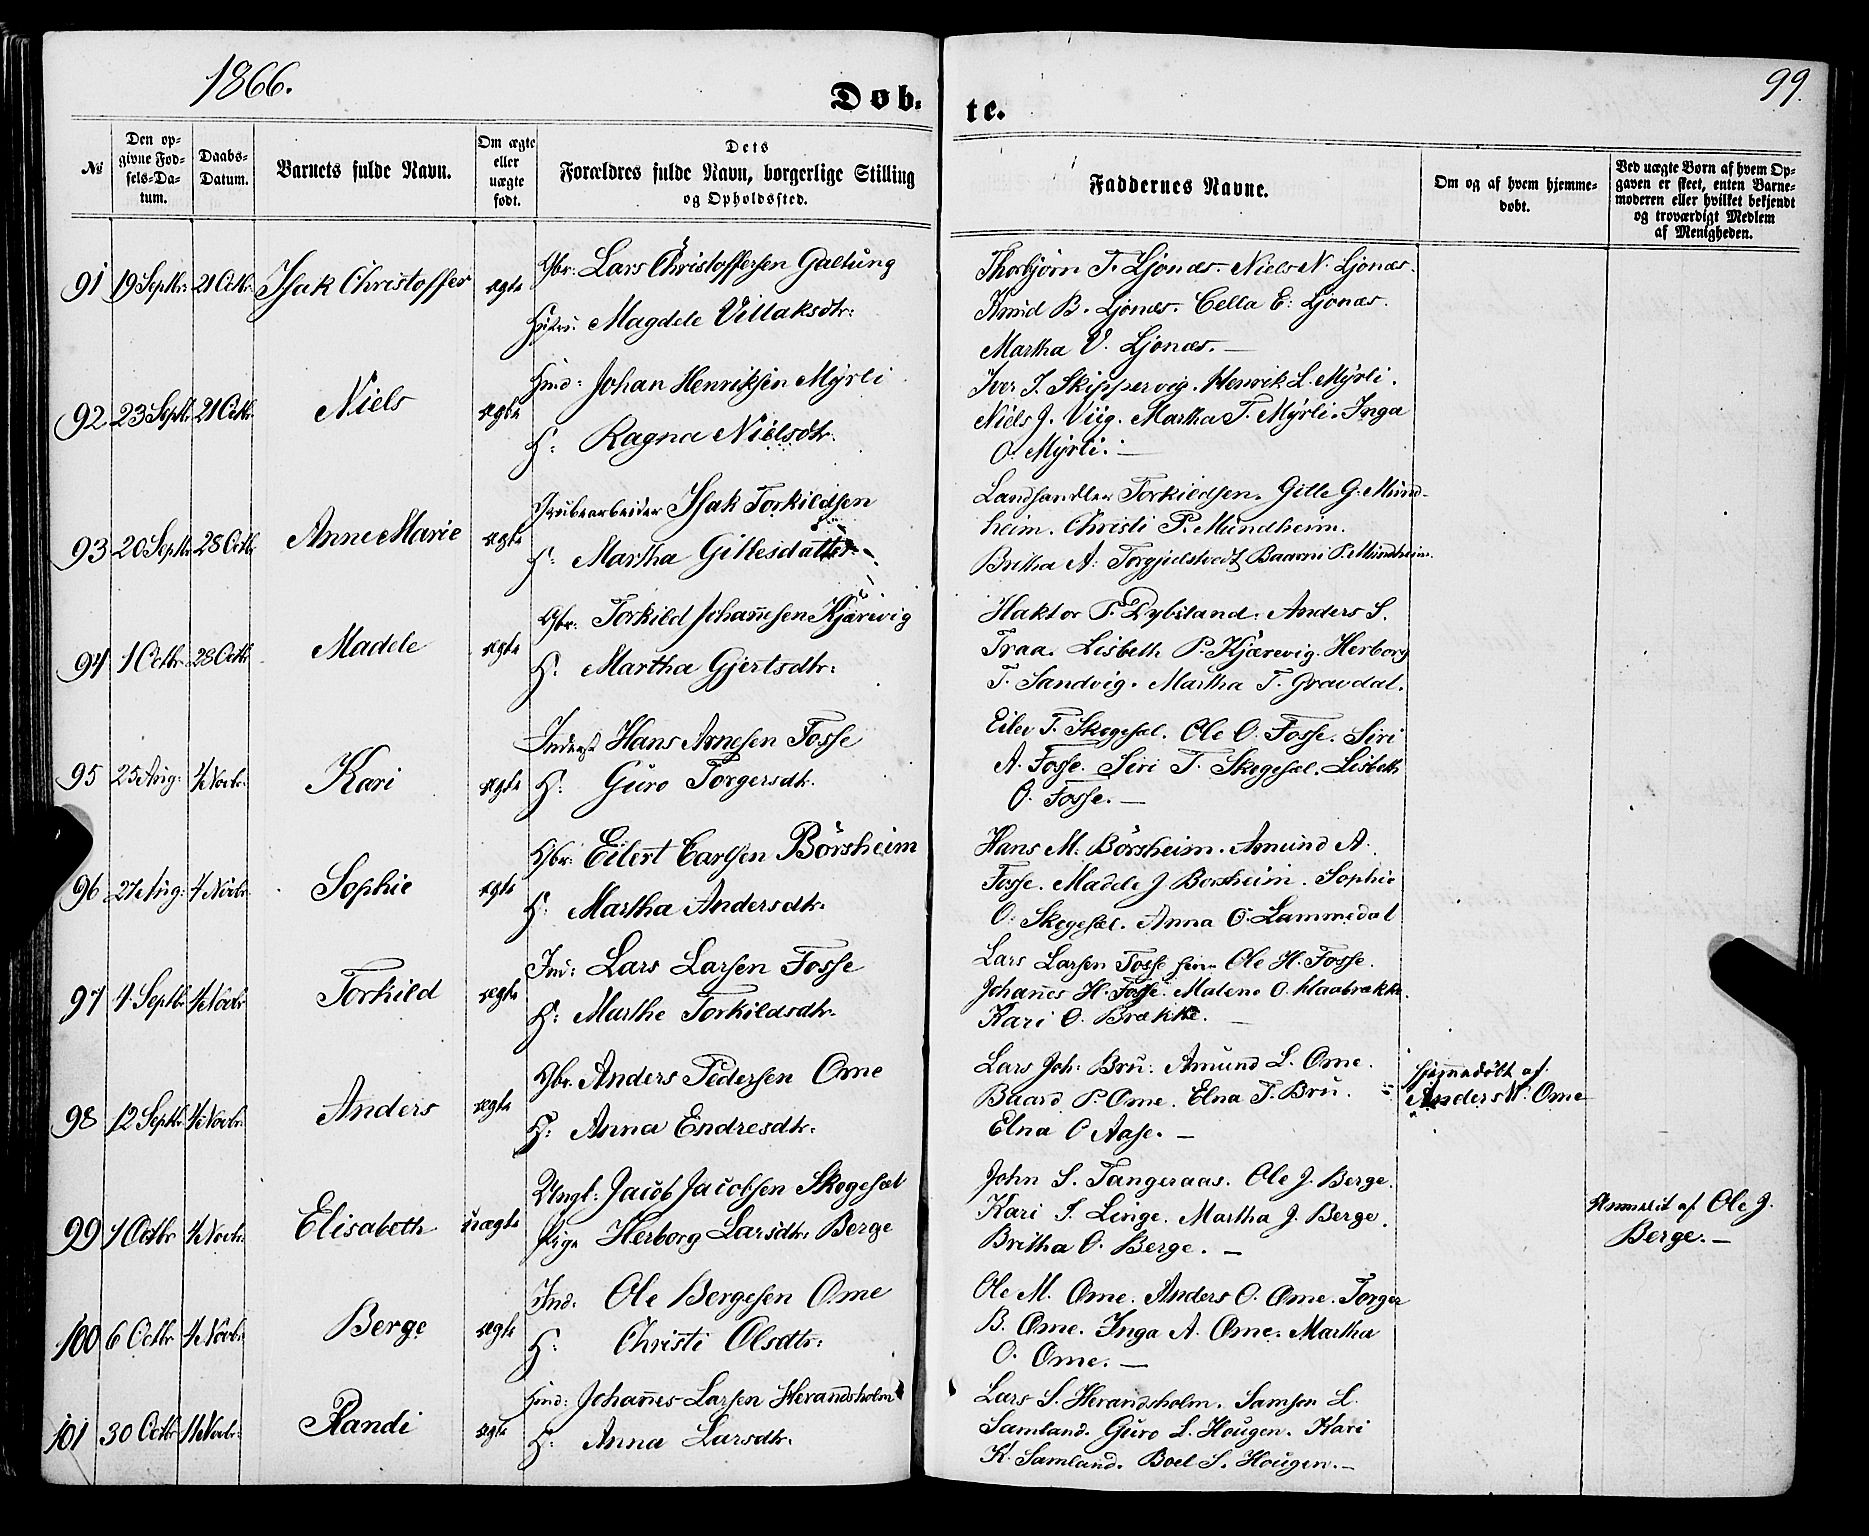 1866.
Døb-
te.
99.
№
Den op-
givne Fød-
sels-Da-
tum.
Daabs-
Datum.
Barnets fulde Navn.
Om ægte
eller
uægte
født.
Dets
Forældres fulde Navn, borgerlige Stilling
og Opholdssted.
Faddernes Navne.
Om og af hvem hjemme-
døbt.
Ved uægte Børn af hvem Op-
gaven er skeet, enten Barne-
moderen eller hvilket bekjendt
og troværdigt Medlem
af Menigheden.
91 19 Septbr. 21 Octbr. Isak Christoffer ægte Gbr: Lars Christoffersen Galtung
Hustru: Magdele Villaksdtr:
Thorbjørn T. Ljonæs. Niels N. Ljonæs.
Knud B. Ljonæs. Cella E: Ljonæs.
Martha V. Ljonæs. —
92 23 Septbr 21 Octbr. Niels ægte Hmd: Johan Henriksen Myrli
H: Ragna Nielsdtr:
Iver J. Skippervig. Henrik L. Myrli.
Niels J. Viig. Martha T. Myrli. Inga
O. Myrli. —
93 20 Septbr 28 Octbr Anne Marie ægte Grubearbeider Isak Torkildsen
H: Martha Gittesdatter
Landhandler Torkildsen. Gitle G. Mund-
heim. Christi P. Mundheim.
Britha A: Torgjelstvedt Baarni P. Mundheim.
94 1 Octbr. 28 Octbr Madele ægte Gbr: Torkild Johannesen Kjærevig
H: Martha Gjertsdtr:
Haktor P. Dybsland. Anders S.
Traa. Lisbeth P. Kjærevig. Herborg
T. Sandvig. Martha T. Gravdal.
95 25 Aug: 4 Novbr: Kari ægte Inderst Hans Arnesen Fosse
H: Guro Torgersdtr.
Eilev T. Skogesæl. Ole O. Fosse. Siri
A. Fosse. Siri T. Skogesæl. Lisbeth
O. Fosse. —
96 27 Aug: 4 Novbr: Sophie ægte Gbr: Eilert Carlsen Børsheim
H: Martha Andersdtr.
Hans M. Børsheim. Amund A.
Fosse. Madele J Børsheim. Sophie
O: Skogesæl. Anna O. Lammedal
97 4 Septbr 4 Novbr Torkild ægte Ind: Lars Larsen Fosse
H: Marthe Torkildsdtr.
Lars Larsen Fosse sen. Ole H. Fosse.
Johannes H. Fosse. Malene O. Klaabrække.
Kari O. Brække. —
98 12 Septbr 4 Novbr. Anders ægte Gbr. Anders Pedersen Ome
H: Anna Endresdtr:
Lars Joh. Bru. Amund L. Ome.
Baard P. Ome. Elna T. Bru.
Elna O Aase. —
Hjemmedøbt af
Anders N. Ome
99 1 Octbr 4 Novbr. Elisabeth uægte Ungk: Jacob Jacobsen Skogesæl
Pige Herborg Larsdtr. Berge
John S. Tangeraas. Ole J. Berge.
Kari S. Linge. Martha J. Berge.
Britha O. Berge. —
Anmeldt af Ole J.
Berge. —
100 6 Octbr 4 Novbr: Berge ægte Ind. Ole Bergesen Ome
H: Christi Olsdtr:
Ole M. Ome. Anders O. Ome. Torger
B. Ome. Inga A. Ome. Martha
O. Ome. —
101 30 Octbr 11 Novbr: Randi ægte Hmd: Johannes Larsen Herandsholm
H: Anna Larsdtr.
Lars S. Herandsholm. Samson L.
Samland. Guro L. Hougen. Kari
K. Samland. Boel S. Hougen. —